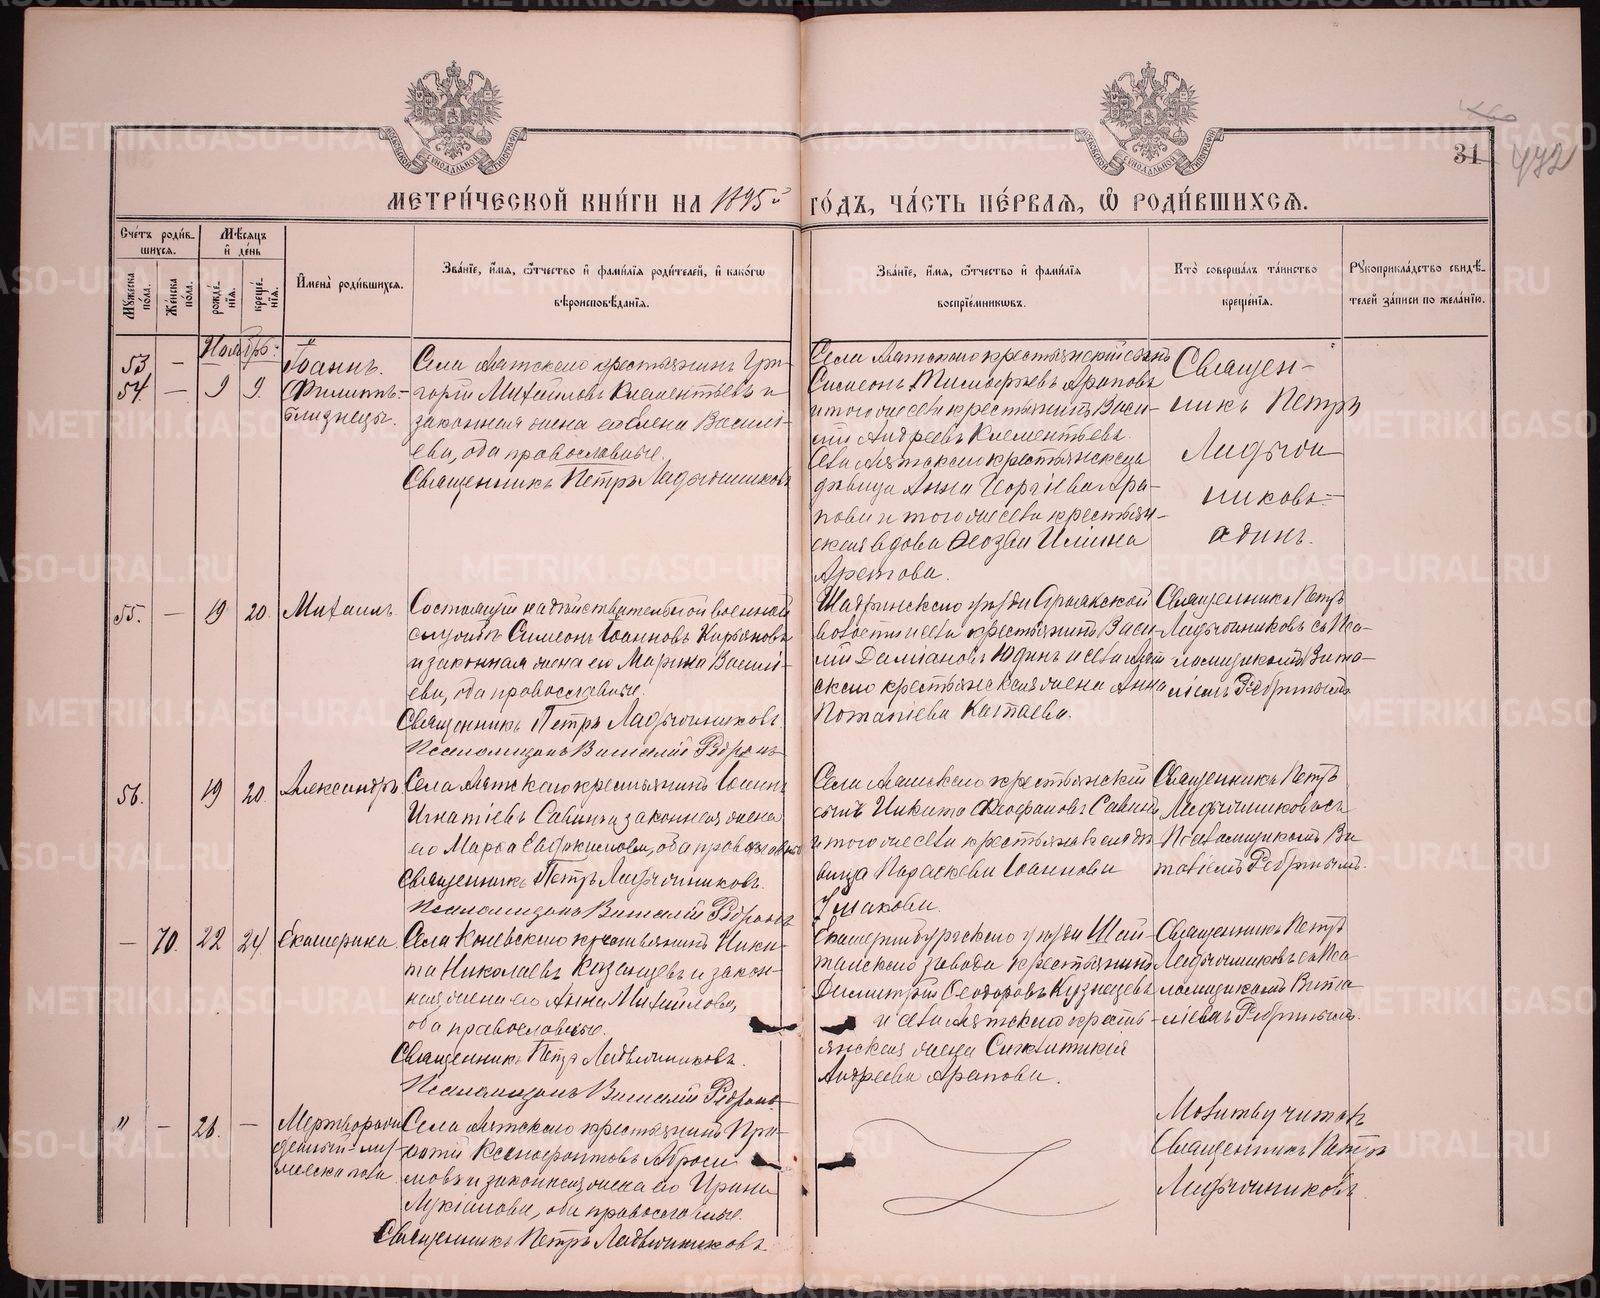 31
472
МЕТРИЧЕСКОЙ КНИГИ НА 1895й ГОДЪ, ЧАСТЬ ПЕРВАЯ, Ѡ РОДИВШИХСЯ.
Счетъ родившихся.
Мѣсяцъ и день
Мужеска пола.
Женска пола.
рожденія.
крещенія.
Имена родившихся.
Званіе, имя, отчество и фамилія родителей, и какогѡ
вѣроисповѣданія.
Званіе, имя, отчество и фамилія
воспріемниковъ.
Кто совершалъ таинство
крещенія.
Рукоприкладство свидѣтелей записи по желанію.
Ноябрь:
53 —
54. — 9 9.
Іоаннъ.
Филиппъ-
близнецы.
Села Аятскаго крестьянинъ Гри-
горій Михайловъ Клементьевъ и
законная жена его Елена Василі-
ева, оба православные.
Священникъ Петръ Ладыжниковъ
Села Аятскаго крестьянскій сынъ
Симеонъ Тимофеевъ Араповъ
и того же села крестьянинъ Васи-
лій Андреевъ Клементьевъ.
Села Аятскаго крестьянская
дѣвица Анна Георгіева Ара-
пова и того же села крестьян-
ская вдова Феозва Ильина
Аретова.
Священ-
никъ Петръ
Ладыжни
никовъ-
одинъ.
55. — 19 20.
Михаилъ
Состоящій на дѣйствительной военной
службѣ Симеонъ Іоанновъ Кирьяновъ
и законная жена его Марина Василі-
ева, оба православные.
Священникъ Петръ Ладыжниковъ.
Псаломщикъ Виталій Ребринъ
Шадринскаго уѣзда
волости и села крестьянинъ Васи-
лій Даміановъ Юдинъ и села Аят
скаго крестьянская жена Анна
Потапіева Катаева.
Священникъ Петръ
Ладыжниковъ съ Пса-
ломщикомъ Вита-
ліемъ Ребринымъ
56. 19 20.
Александръ
Села Аятскаго крестьянинъ Іоаннъ
Игнатіевъ Савинъ и законная жена
его Марѳа Евдокимова, оба православные
Священникъ Петръ Ладыжниковъ.
Псаломщикъ Виталій Ребринъ
Села Аятскаго крестьянскій
сынъ Никита Феофановъ Савинъ
и того же села крестьянская дѣ
вица Параскева Іоаннова
Ушакова.
Священникъ Петръ
Ладыжниковъ съ
Псаломщикомъ Ви
таліемъ Ребринымъ.
— 70. 22 24
Екатерина.
Села Коневскаго крестьянинъ Ники-
та Николаевъ Казанцевъ и закон-
ная жена его Анна Михайлова,
оба православные.
Священникъ Петръ Ладыжниковъ.
Псаломщикъ Виталій Ребринъ.
Екатеринбургскаго уѣзда Шай-
танскаго завода крестьянинъ
Димитрій Ѳеодоровъ Кузнецовъ
и села Аятскаго кресть-
янская жена Синклитикія
Андреева Арапова.
Священникъ Петръ
Ладыжниковъ съ Пса-
ломщикомъ Вита-
ліемъ Ребринымъ.
" — 26. —
Мертворож
денный му
жеска пола
Села Аятскаго крестьянинъ Ири-
нархій Ксенофонтовъ Аброси
мовъ и законная жена его Ирина
Лукіанова, оба православные.
Священникъ Петръ Ладыжниковъ.
Молитву читалъ
Священникъ Петръ
Ладыжниковъ.
METRIKI.GASO-URAL.RU